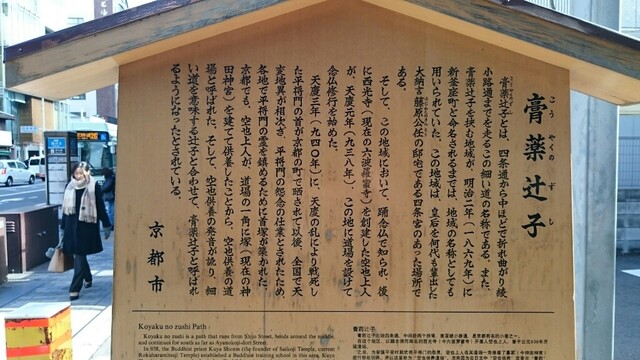 膏薬辻子
こうやくのずし
膏薬辻子とは、四条通から中ほどで折れ曲がり綾
小路通までを走るこの細い道の名称である。また、
膏薬辻子を挟む地域が、明治二年（一八六九年）に
新釜座町と命名されるまでは、地域の名称としても
用いられていた。この地域は、皇后を何代も輩出した
大納言藤原公任の邸宅である四条宮のあった場所で
ある。
そして、この地域において、踊念仏で知られ、後
に西光寺（現在の六波羅蜜寺）を創建した空也上人
が、天慶元年（九三八年）、この地に道場を設けて
念仏修行を始めた。
天慶三年（九四〇年）に、天慶の乱により戦死し
た平将門の首が京都の町で晒されて以後、全国で天
変地異が相次ぎ、平将門の怨念の仕業とされたため、
各地で平将門の霊を鎮めるために首塚が築かれた。
京都でも、空也上人が、道場の一角に塚（現在の神
田神宮）を建てて供養したことから、空也供養の道
場と呼ばれた。そして、空也供養の発音が訛り、細
い道を意味する辻子と合わせて、膏薬辻子と呼ばれ
るようになったとされている。
京都市
Koyaku no zushi Path
Koyaku no zushi is a path that runs from Shijo Street, bends around the middle,
and continues for south as far as Ayanokoji-dori Street.
In 938, the Buddhist priest Kuya Shonin (the founder of Saikoji Temple, current
Rokuharamitsuji Temple) established a Buddhist training school in this area. Kuya
膏药辻子